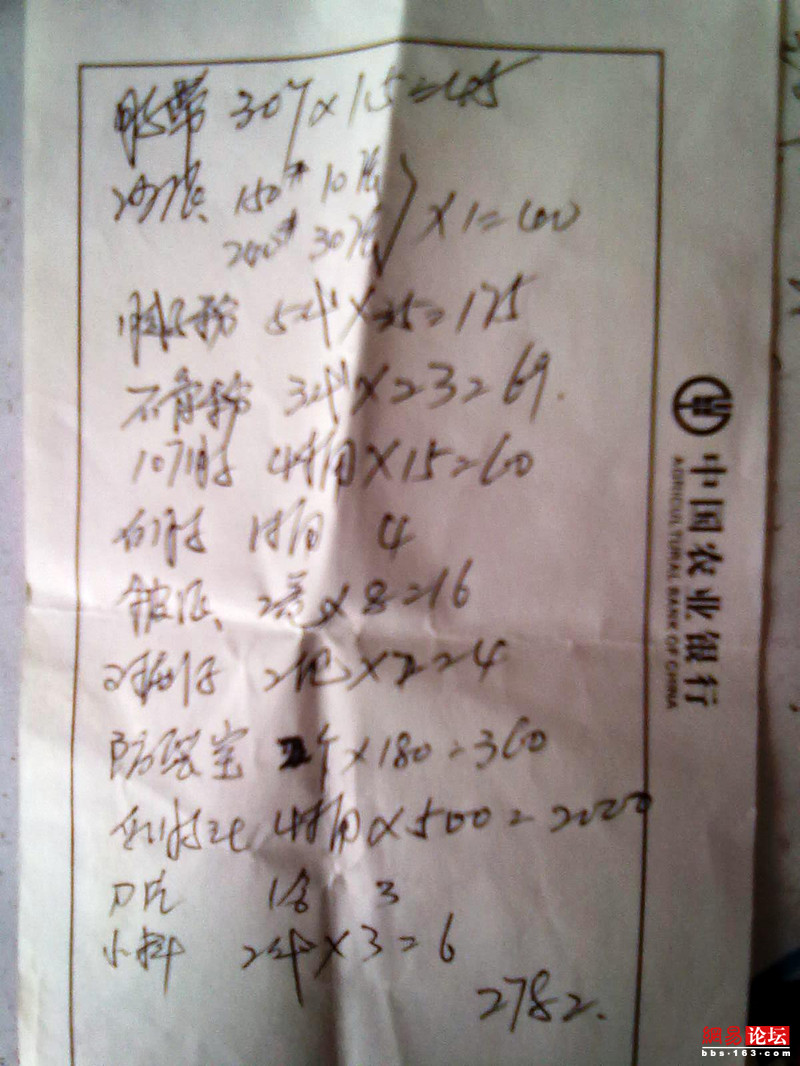 胶带 30个×1.5=45
沙张 150# 10张
240# 30张 ×1=40
腻子粉 5代×35=175
石膏粉 3代×23=69.
107胶 4桶×15=60
白胶 1桶 4
2卷×8=16
2把×2=4
防裂宝 2个×180=360
4桶×500=2000
刀片 1合 3
小料 2代×3=6
2782.
中国农业银行
AGRICULTURAL BANK OF CHINA
网易论坛
bbs.163.com